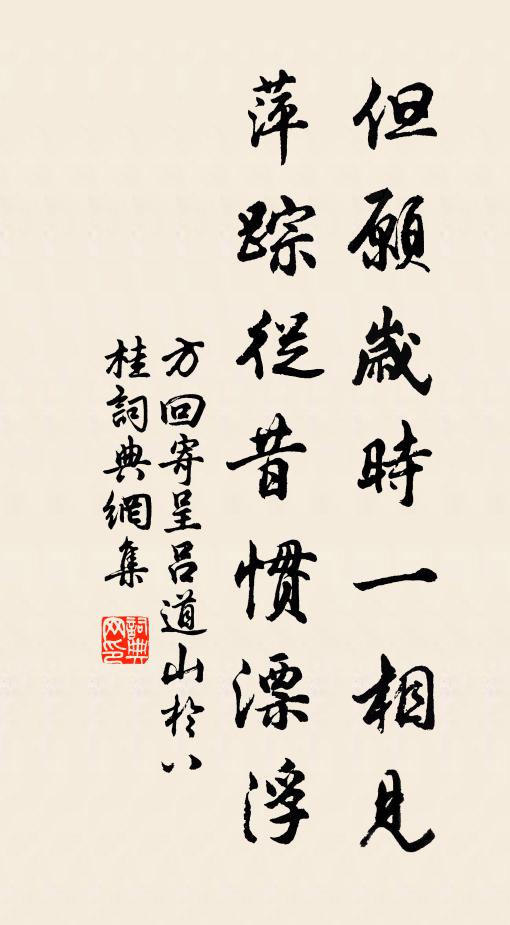 但願歲時一相見
萍踪從昔慣漂浮
方回寄呈呂道山於八
桂詞典網集
詞典网印